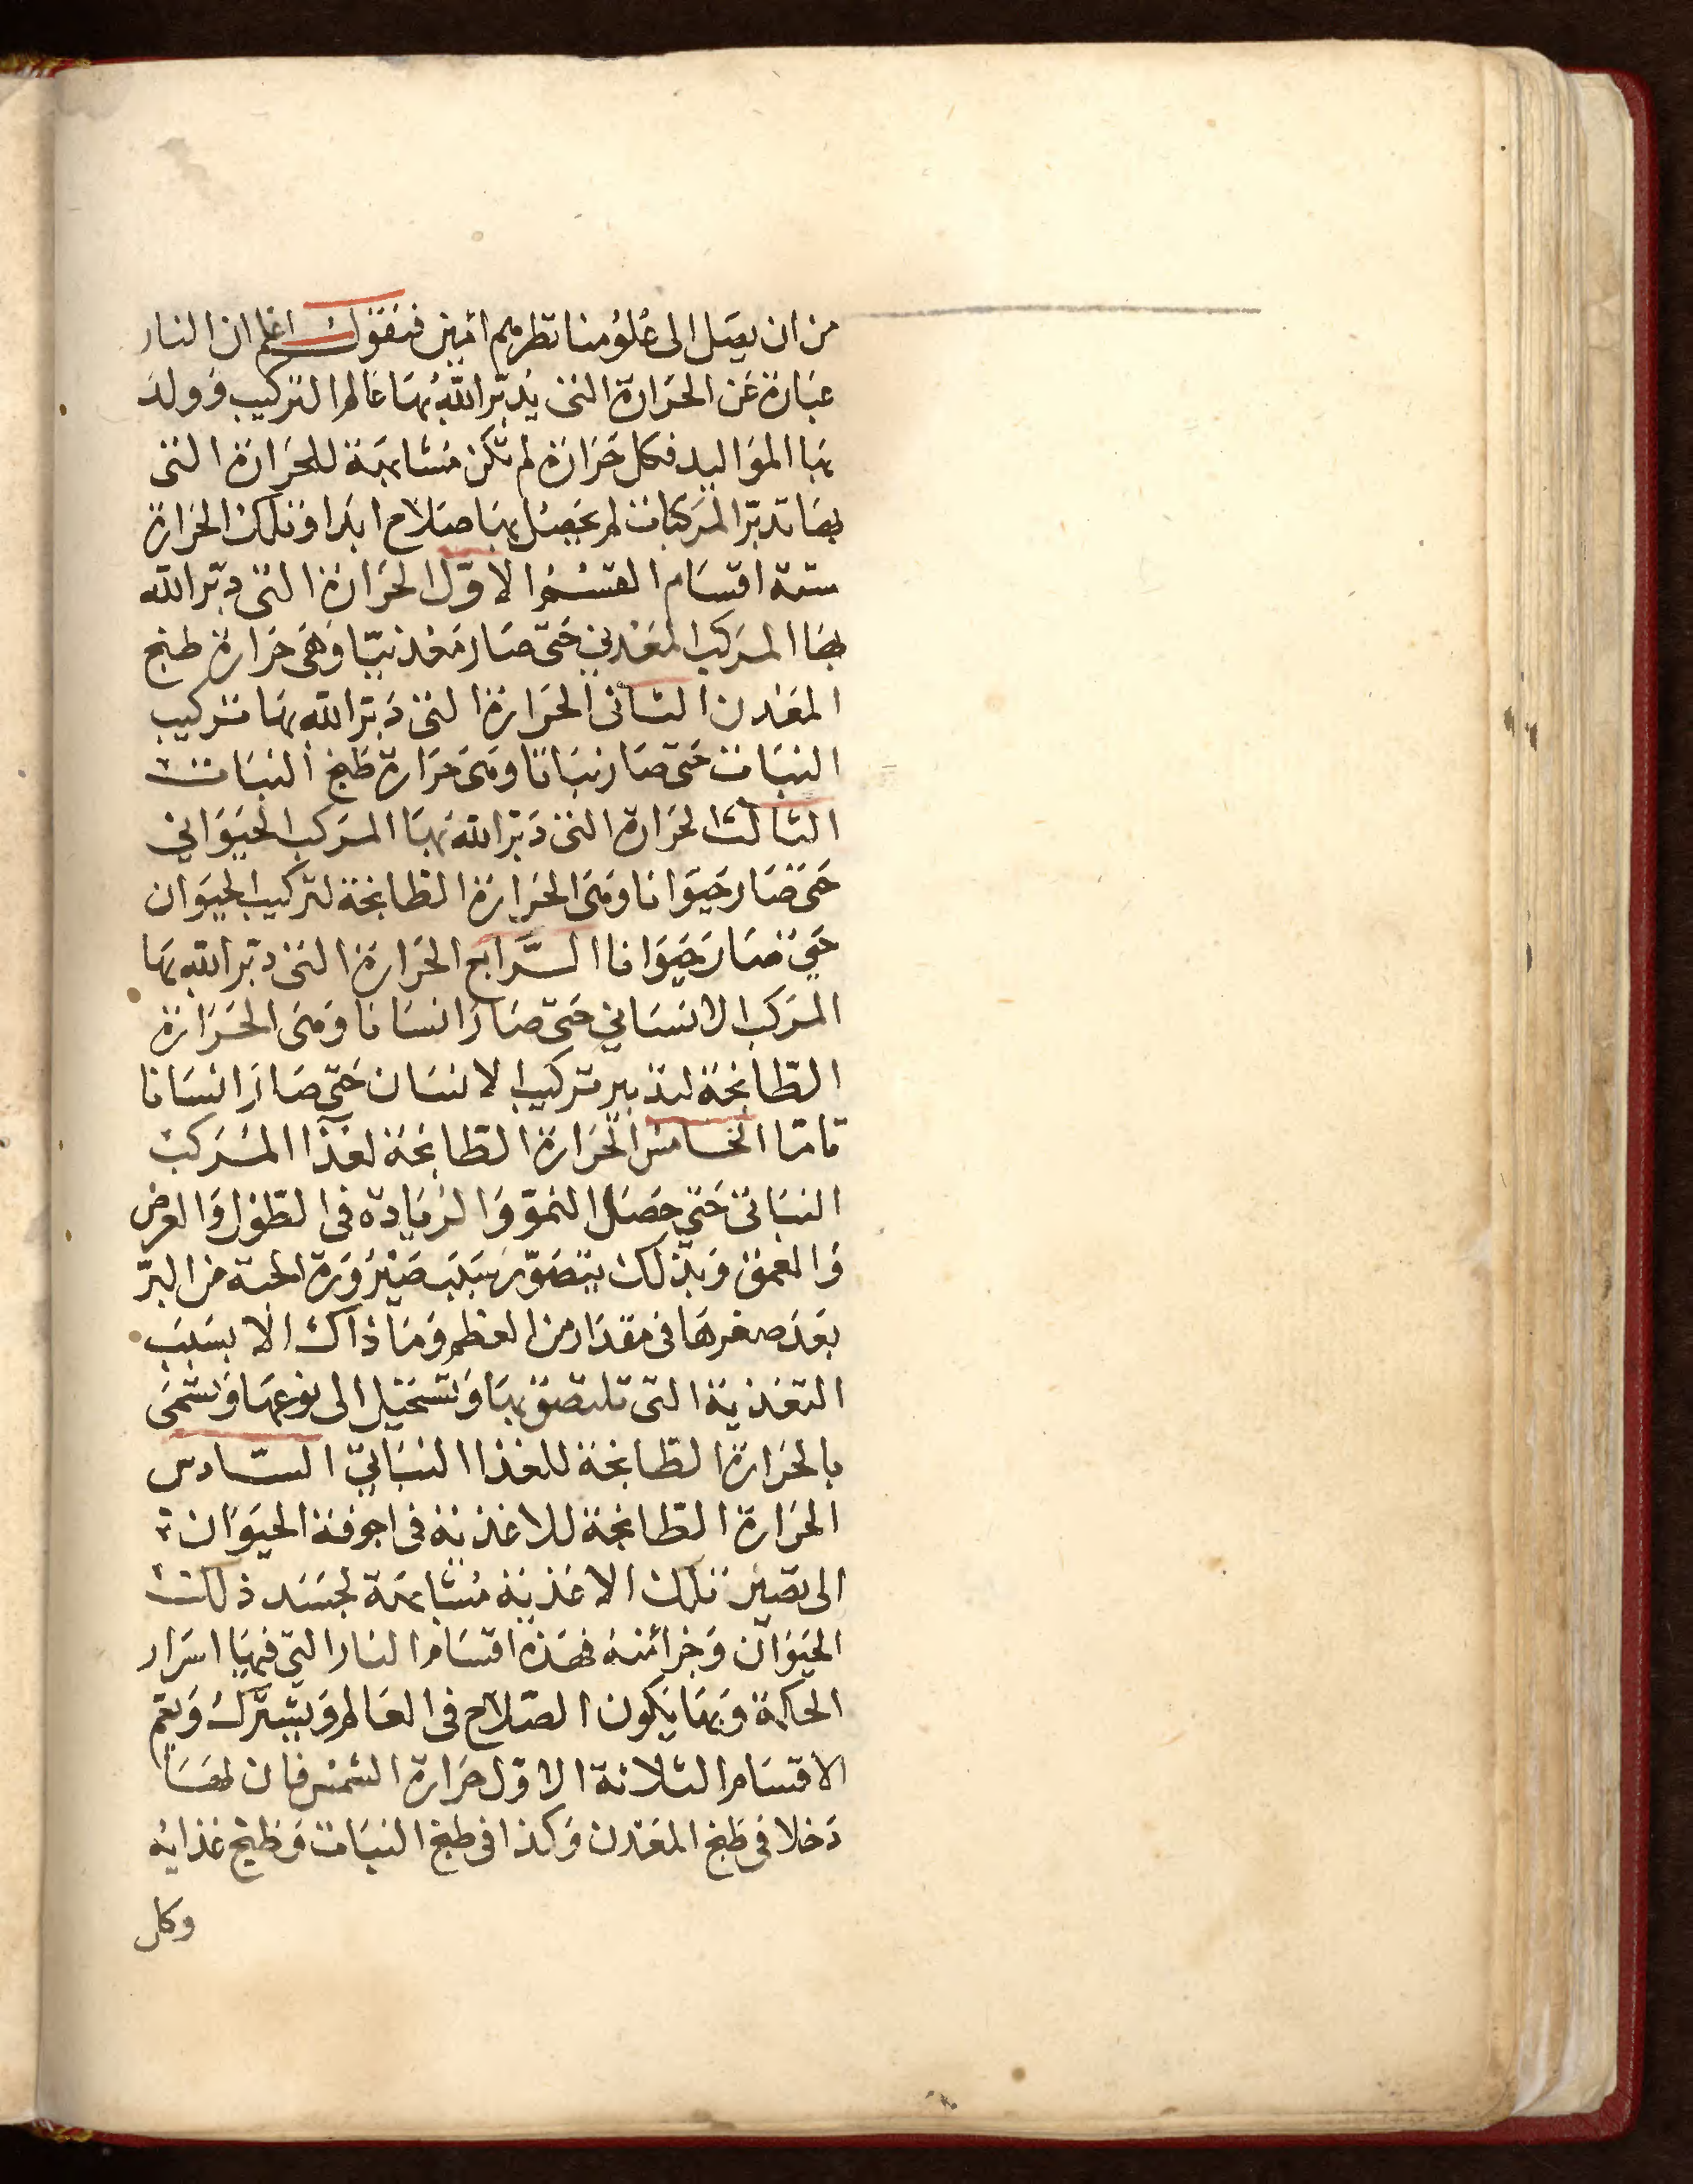 من ان يصل الى علومنا نظرهم امين فنقول اعلم ان النار
عبَارة عَن الحَرارة التى يُدبّر اللّه بهَا عَالم التركيب وَولد
بهَا الموَاليد فكل حَرَارة لم تكن مشَابهَة للحَرَارة التى
بهَا تدبّر المركبات لم يحصل بهَا صَلاح ابدا وَتلك الحرارة
ستة اقسَام القسم الاوّل الحَرارة التى دبّر اللّه
بهَا المركب المعدني حَتى صَار مَعْدنيّا وَهى حَرارة طبخ
المعْدن الثانى الحَرارة التى دَبّر اللّه بهَا تركيب
النبَات حَتى صَار نبَاتا وهى حَرَارة طَبخ النبَات
الثالث الحَرارة التى دَبّر اللّه بهَا المركب الحيوَاني
حَتى صَار حَيوَانا وَهى الحَرارة الطابخة لتركيب الحيوَان
حَتي صَار حَيوَانا الرَّابع الحَرارة التى دبّر اللّه بهَا
المركب الانسَاني حَتى صَار انسَانا وَهى الحَرَارة
الطّابخة لتدبير تركيب الانسَان حَتي صَار انسَانا
تامّا الخامس الحَرارة الطابخة لغذا المركب
النبَاتى حَتي حَصَل النموّ وَالزيَادة فى الطّول وَالعرض
وَالعمق وَبذلك يتصَوّر سَبَب صَيْرُورَة الحبة من البرّ
بَعَد صغرهَا فى مقدَار من العظم وَمَا ذاك الا بسَبَب
التغذية التى تلتصق بهَا وَتستحيل الى نوعهَا وَتسمى
بالحَرَارة الطابخة للغذا النبَاتيّ السّادس
الحَرارة الطابخة للاغذية فى اجوفة الحيَوَان
الى تصير تلك الاغذية مُشابهَة لجسَد ذلك
الحَيَوَان وَجزائه فهَذه اقسَام النار التي فيهَا اسرَار
الحكمة وَبهَا يَكون الصّلاح فى العَالم وَيشترك وَيعم
الاقسَام الثلاثة الاوّل حَرارة الشمس فان لهَا
دَخلا فى طَبخ المَعْدن وَكذا فى طبخ النبَات وَطبخ غذايه
وكل